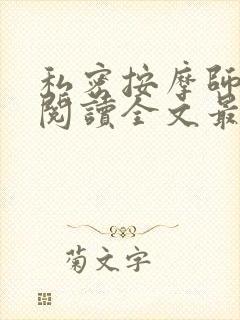 私密按摩師
閱讀全文最
菊文字